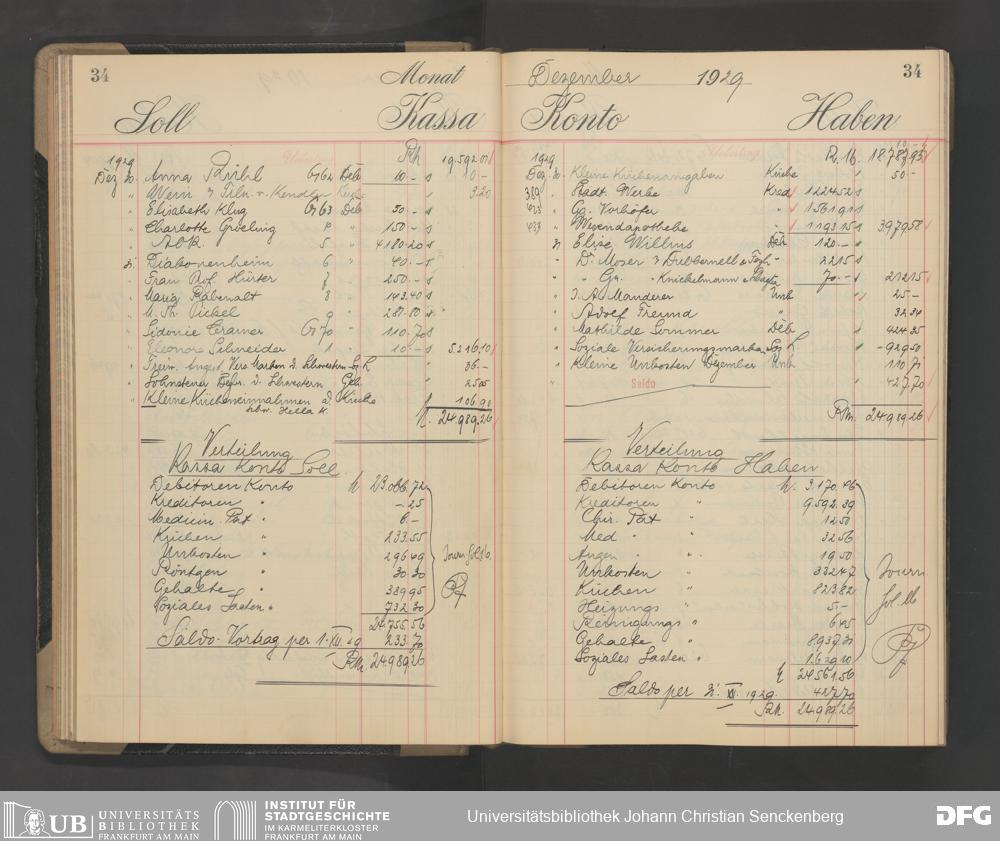 34
Monat
Soll
Kassa
1929
RM 19.592.01
Dez. 30. Anna Deb 10.- 10.-
3.20
" Elisabeth Klug 63 Deb 50.-
" Charlotte " 150.-
" A.O.K. 5 " 4180.20
31. Diakonenheim 6 " 40.-
" Frau Prof. Hürter 7 " 250.-
" Maria Rabenalt 8 " 143.40
" M. Th. Pickel 9 "
" Sidonie Cramer 70 " 110.70
" Eleonore Schneider 1 " 10.- 5.216.10
" Schwestern 36.-
" Schwestern Geh. 25.05
" Kleine Kücheneinnahmen Küche 106.90
Schw. Hella K.
24.989.26
Verteilung
Kassa Konto Soll
Debitoren Konto
Kreditoren " -.25
Medizin. Pat " 6.-
Küchen " 233.55
Unkosten " 296.69
Röntgen " 30.30
Gehalte " 389.95
Soziales Lasten " 732.30
24.755.56
Saldo-Vortrag per 1. XII. 29 233.70
RM. 24.989.26
34
Dezember 1929
Konto
Haben
1929
RM. 18.787.95
Dez. 30. Kleine Küchenausgaben Küche 50.-
Stadt. Werke Kred 1224.52
" Gg. Vorhöfer " 1561.91
" Wesendapotheke " 1193.15 3979.58
31. Else Willms Deb 120.-
" Dr. Moser 22.15
" " Gg. Knickelmann 70.- 212.15
" J. A. Manderer Unk 25.-
" Adolf Freund " 32.34
" Mathilde Sommer Deb 424.35
" Soziale Versicherungsmarken Soz L 929.50
" Kleine Unkosten Dezember Unk 110.71
" Saldo 427.70
RM. 24.989.26
Verteilung
Kassa Konto Haben
Debitoren Konto 3.170.46
Kreditoren " 9.592.39
Chir. Pat " 12.50
Med " " 32.56
Augen " " 19.50
Unkosten " 332.47
Küchen " 823.82
Heizungs " 5.-
Reinigungs " 6.45
Gehalte " 8.937.31
Soziales Lasten " 1.629.10
24.561.56
Saldo per 31. XII. 1929. 427.70
RM. 24.989.26
UB UNIVERSITÄTS
BIBLIOTHEK
FRANKFURT AM MAIN
INSTITUT FÜR
STADTGESCHICHTE
IM KARMELITERKLOSTER
FRANKFURT AM MAIN
Universitätsbibliothek Johann Christian Senckenberg
DFG